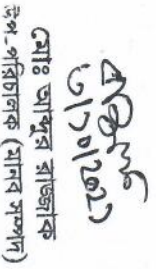 ৩/১০/২০২১
মোঃ আব্দুর রাজ্জাক
উপ-পরিচালক (মানব সম্পদ)